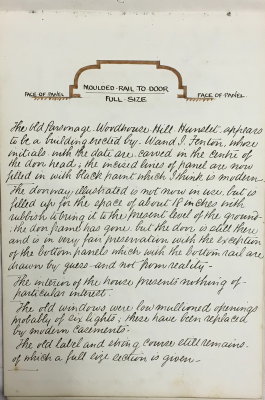 MOULDED-RAIL TO DOOR
FULL SIZE
FACE OF PANEL
FACE OF PANEL
The Old Parsonage Woodhouse Hill Hunslet, appears
to be a building erected by W and I. Fenton, whose
initials with the date are carved in the centre of
the door head; the incised lines of panel are now
filled in with black paint which I think is modern
The doorway illustrated is not now in use but is
filled up for the space of about 18 inches with
rubbish to bring it to the present level of the ground.
the door frame has gone but the door is still there
and is in very fair preservation with the exception
of the bottom panels which with the bottom rail are
drawn by guess and not from reality-
The interior of the house presents nothing of
particular interest.
The old windows were low mullioned openings
probably of six lights; these have been replaced
by modern casements-
The old label and string course still remains.
of which a full size section is given-